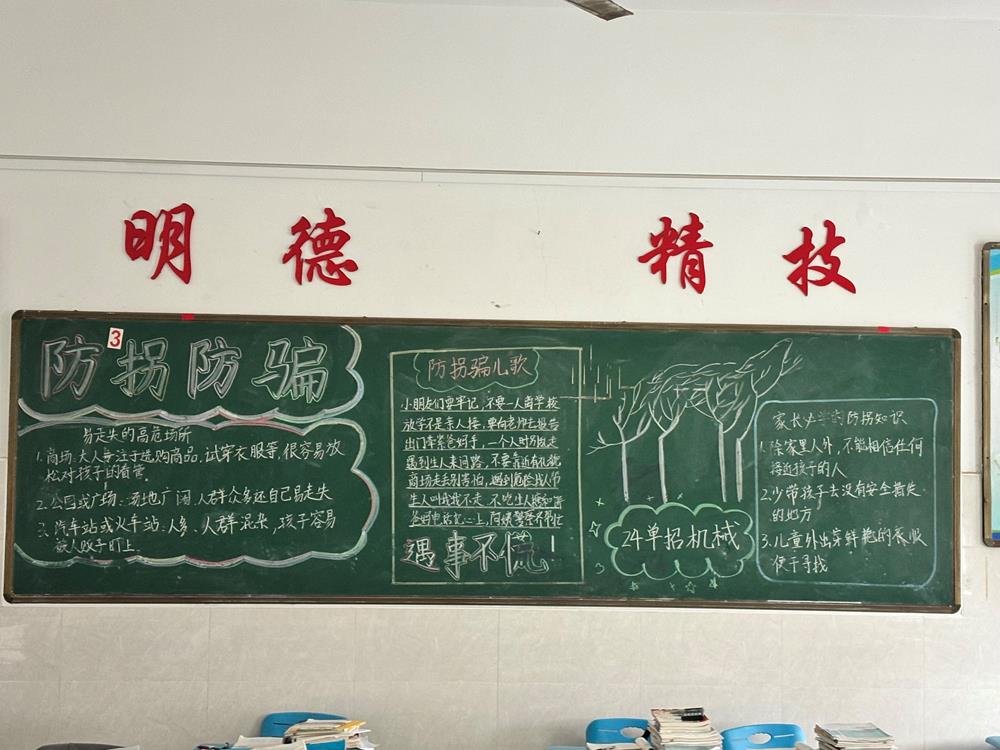 明 德 精 技
3
防拐防骗
易走失的高危场所
1.商场:大人专注于选购商品,试穿衣服等,很容易放
松对孩子的看管.
2.公园或广场:场地广阔,人群众多还自己易走失
3.汽车站或火车站:人多、人群混杂,孩子容易
被人贩子盯上.
防拐骗儿歌
小朋友们要牢记,不要一人离学校
放学不是亲人接,要向老师去报告
出门牵紧爸妈手,一个人时
遇到生人来问路,不要靠近有礼貌
商场走丢别害怕,遇到危险找人帮
生人叫我我不走,不吃生人
爸妈电话记心上,
遇事不慌!
24单招机械
家长必学的防拐知识
1.除家里人外,不能相信任何
接近孩子的人
2.少带孩子去没有安全措失
的地方
3.儿童外出穿鲜艳的衣服
便于寻找